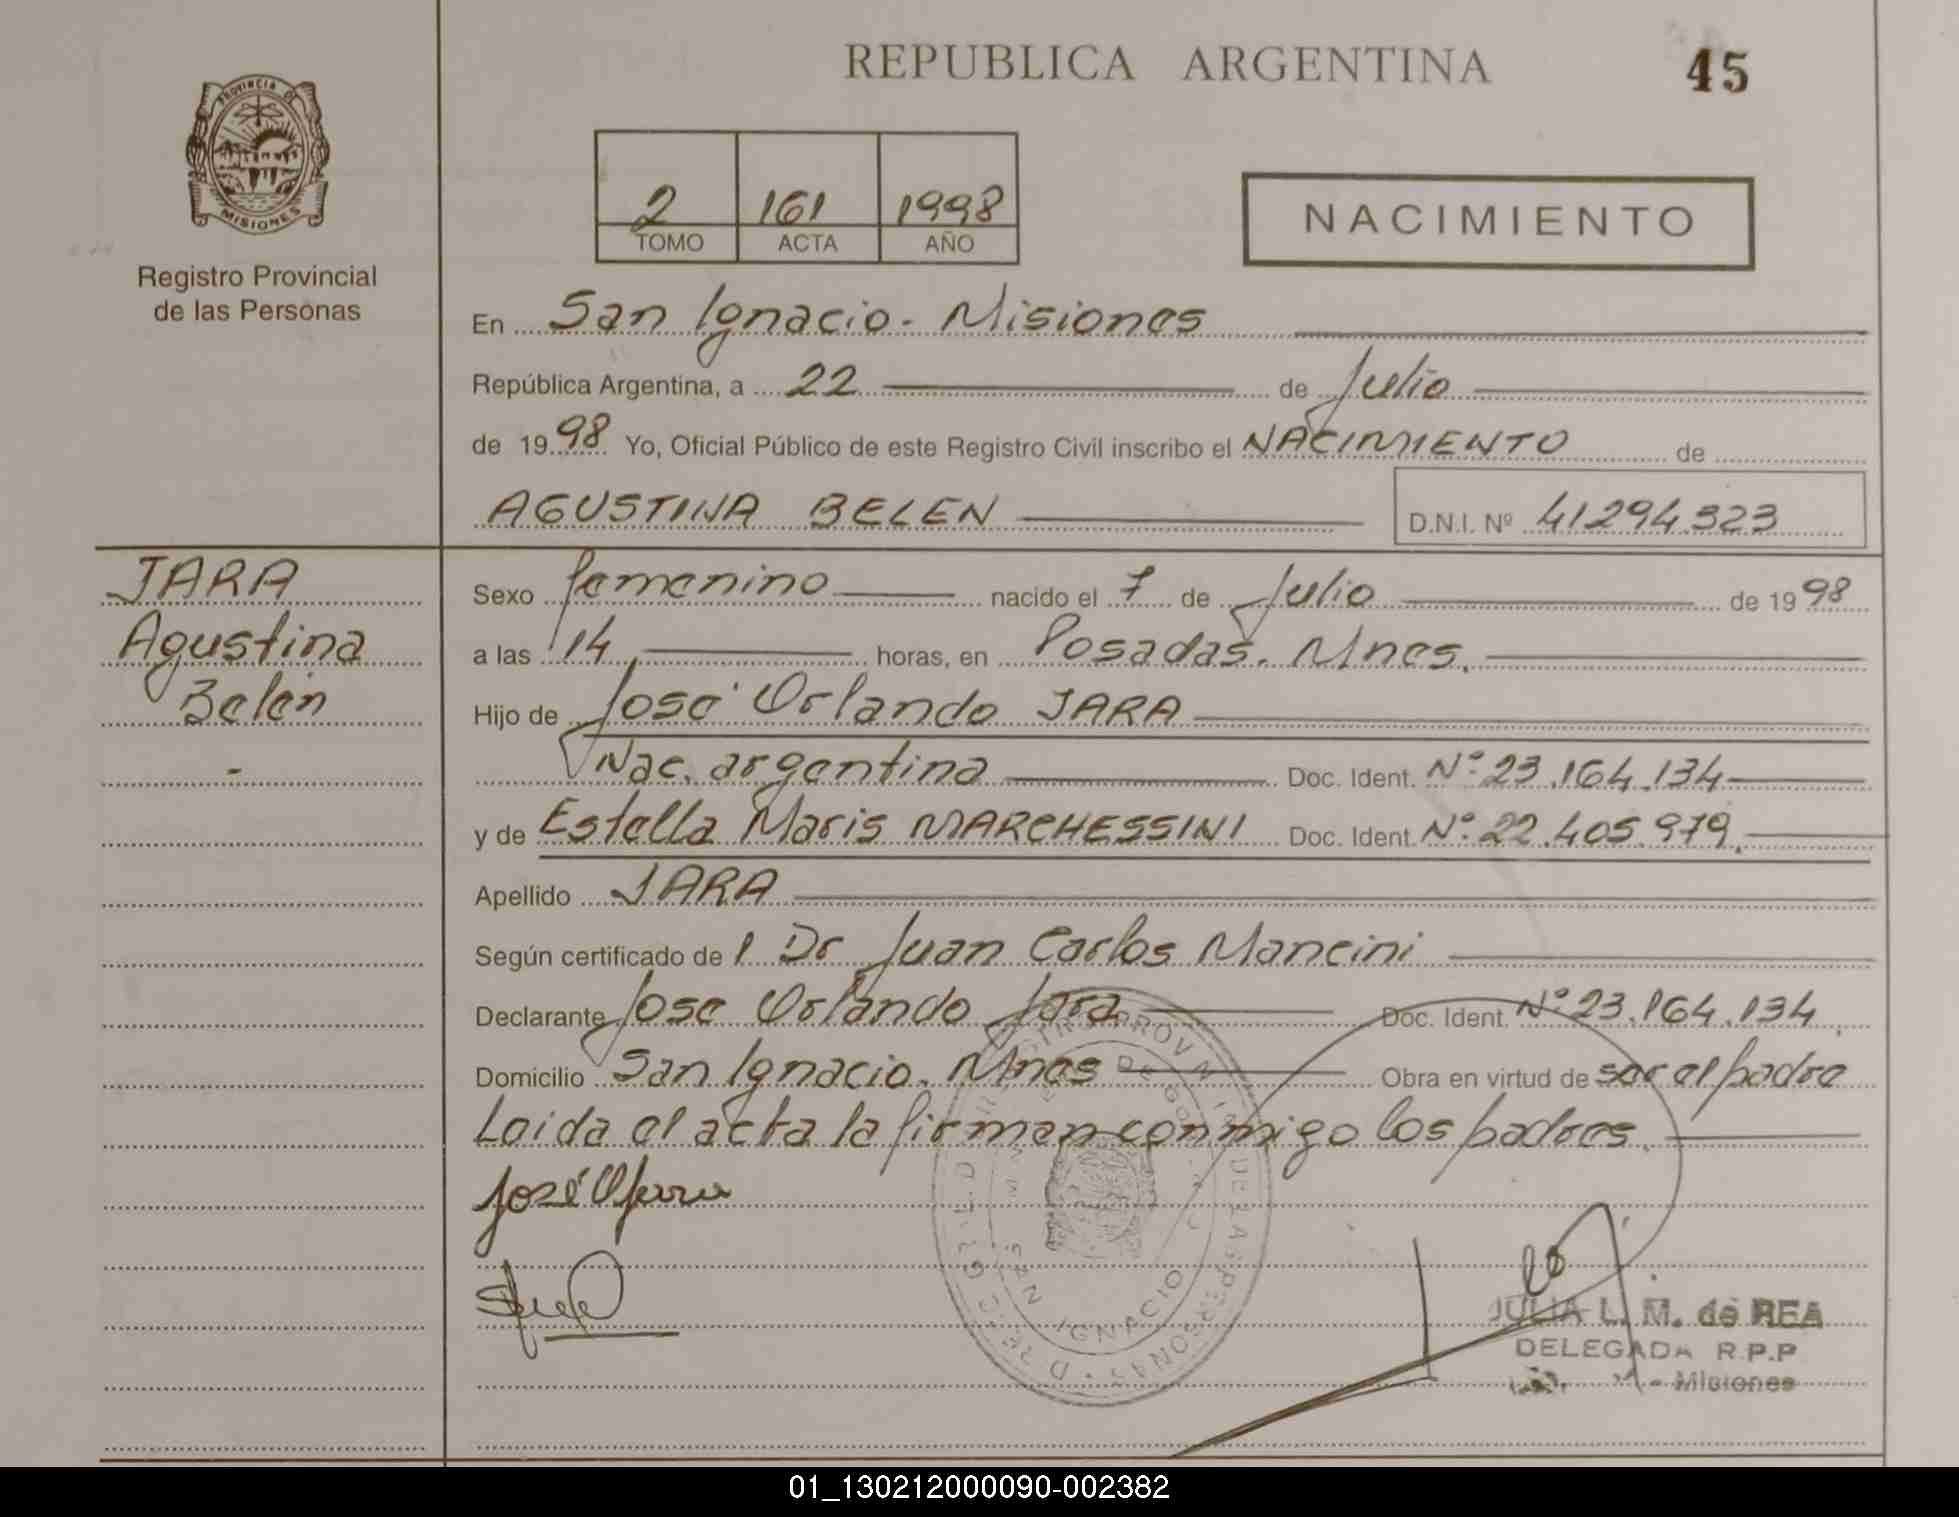 REPUBLICA ARGENTINA
45
PROVINCIA DE
MISIONES
Registro Provincial
de las Personas
2 161 1998
TOMO ACTA AÑO
NACIMIENTO
En San Ignacio - Misiones
República Argentina, a 22 de Julio
de 1998 Yo, Oficial Público de este Registro Civil inscribo el NACIMIENTO de
AGUSTINA BELEN D.N.I. Nº 41294.323
JARA
Agustina
Belén
-
Sexo femenino nacido el 7 de Julio de 1998
a las 14 horas, en Posadas. Mnes.
Hijo de José Orlando JARA
Nac. argentina Doc. Ident. Nº 23.164.134
y de Estella Maris MARCHESSINI Doc. Ident. Nº 22.405.979.
Apellido JARA
Según certificado de l Dr Juan Carlos Mancini
Declarante Jose Orlando Jara Doc. Ident. Nº 23.164.134
Domicilio San Ignacio. Mnes Obra en virtud de ser el padre
Leida el acta la firman conmigo los padres.
SAN IGNACIO
DE LAS PERSONAS
JULIA L. M. de REA
DELEGADA R.P.P
Misiones
01_130212000090-002382